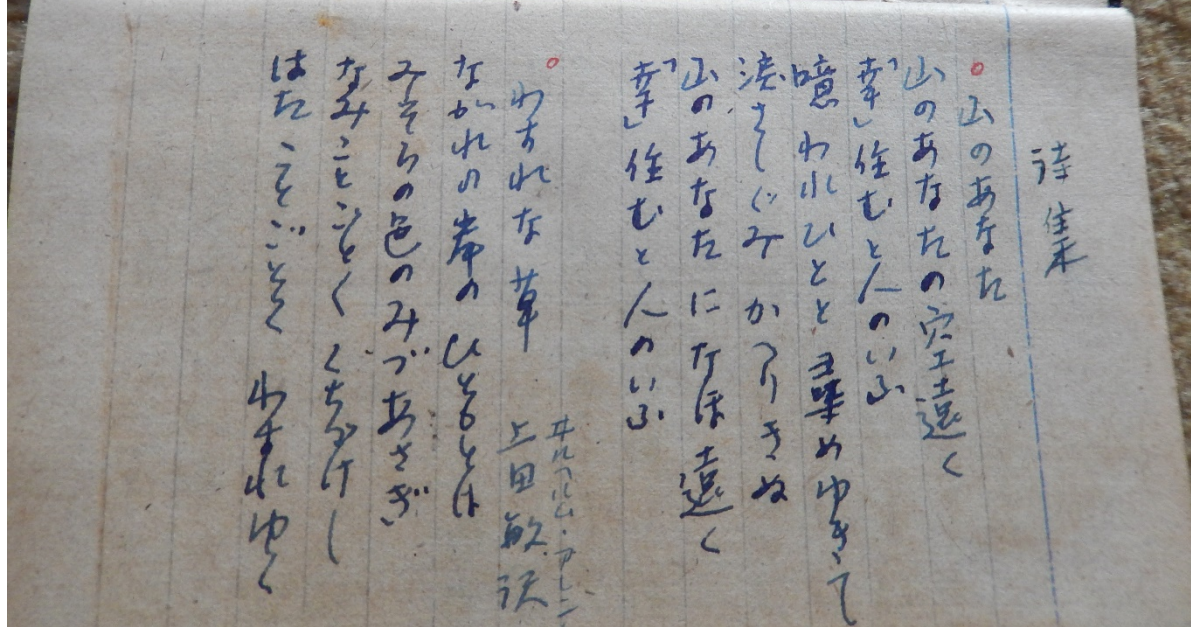 詩集
山のあなた
山のあなたの空遠く
「幸」住むと人のいふ
噫われひとと尋めゆきて
涙さしぐみかへりきぬ
山のあなたになほ遠く
「幸」住むと人のいふ
わすれな草
ヰルヘルム・アレン
上田敏訳
ながれの岸のひともとは
みそらの色のみづあさぎ
なみことごとくくちづけし
はたことごとくわすれゆく